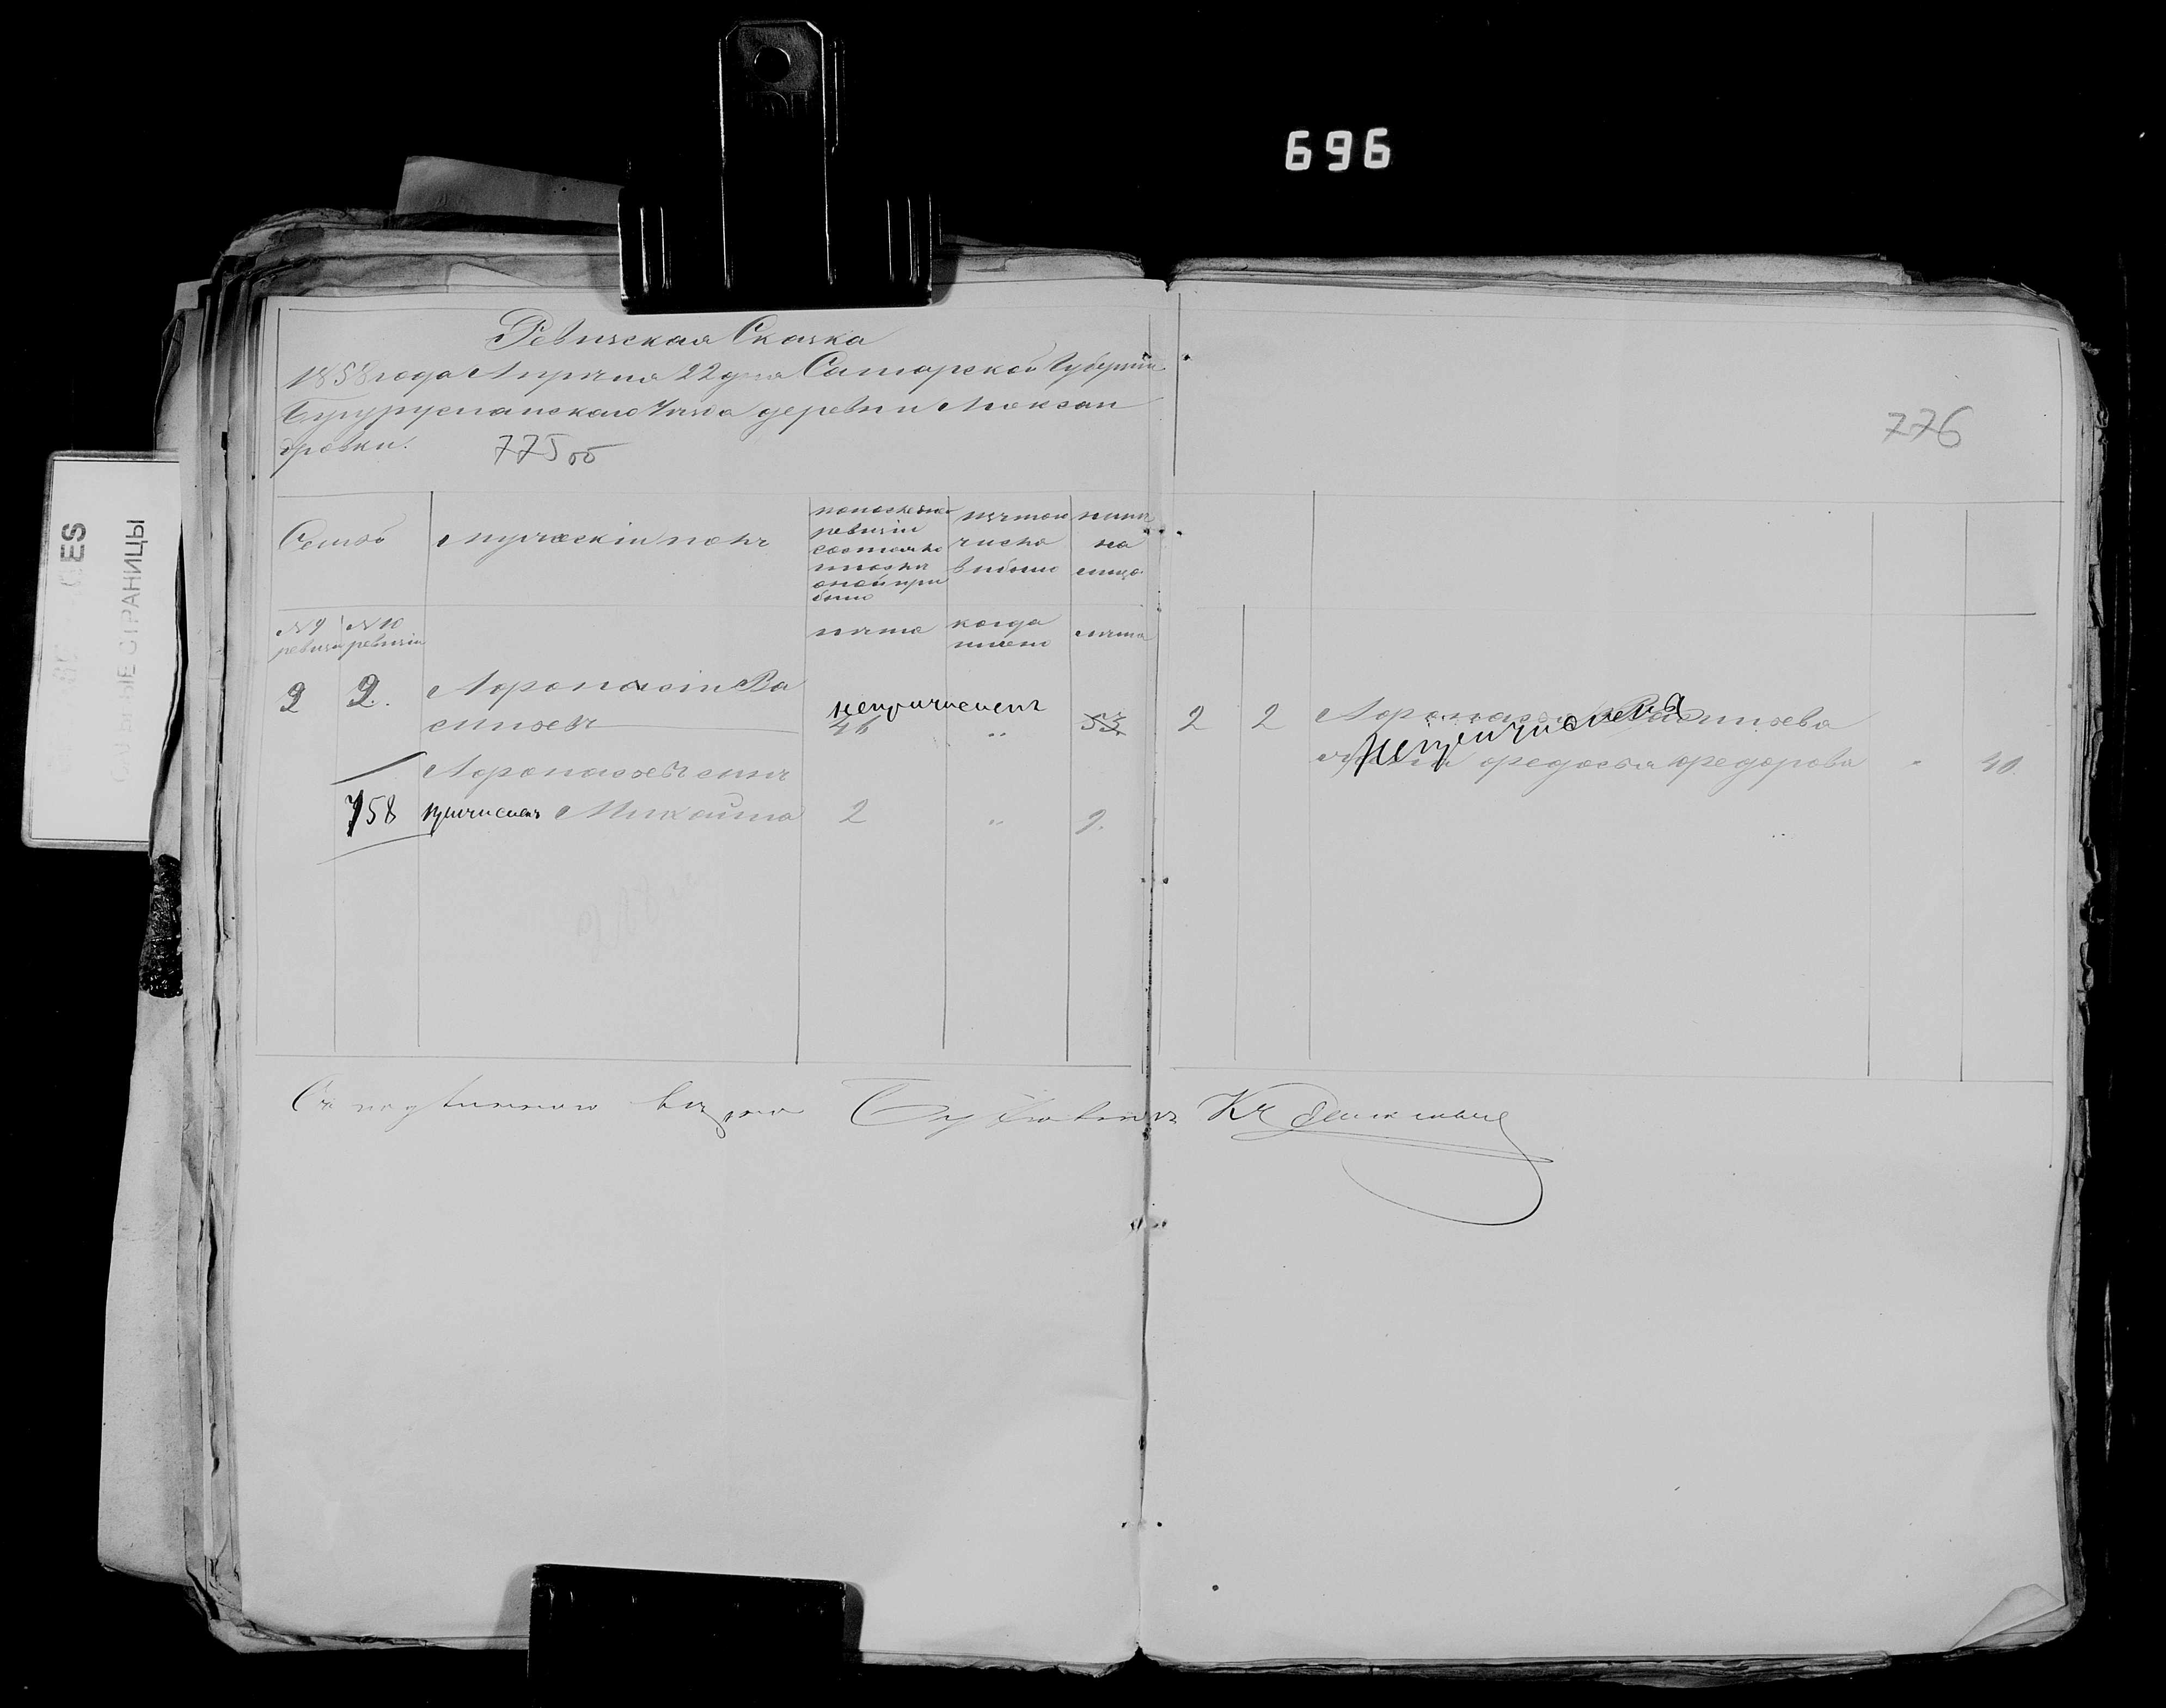 696
Ревизская Сказка
1858 года Апреля 22 дня Самарской Губернии
Бугурусланского Уезда деревни Алексан
дровки.
775 об
776
Семьи
мужескій полъ
по последней
ревизіи
состояло
и после
оной при
было
изъ того
числа
выбыло
ныне
на
лицо
№ 9
ревизіи
№ 10
ревизіи
лета
когда
именно
лета
2
2.
Афонасій Ва
сильевъ
непричисленъ
46
"
53
Афонасьевъ сынъ
758
причисленъ Михайла
2
"
9.
2
2
Афонасья Васильева
непричислена
жена Федосья Федорова
"
40.
Съ подлинною верно
ES
СТРАНИЦЫ